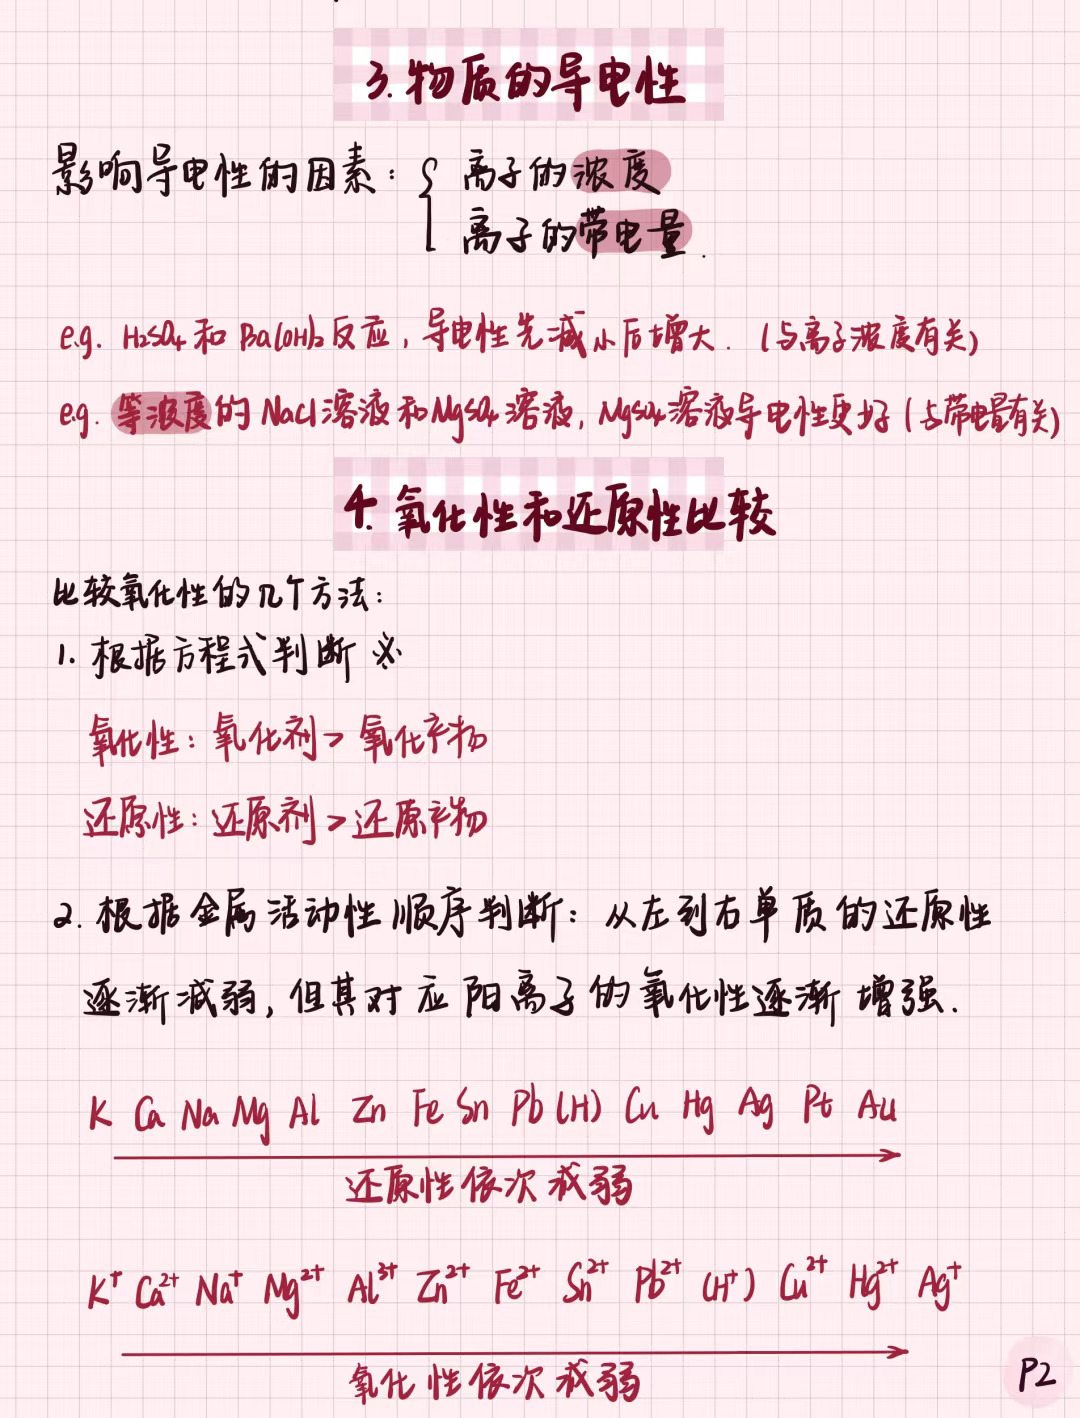 3.物质的导电性
影响导电性的因素: { 离子的浓度
离子的带电量.
e.g. H₂SO₄和 Ba(OH)₂反应,导电性先减小后增大. (与离子浓度有关)
e.g. 等浓度的 NaCl溶液和MgSO₄溶液, MgSO₄溶液导电性更好(与带电量有关)
4.氧化性和还原性比较
比较氧化性的几个方法:
1. 根据方程式判断 ※
氧化性: 氧化剂 > 氧化产物
还原性: 还原剂 > 还原产物
2. 根据金属活动性顺序判断: 从左到右单质的还原性
逐渐减弱, 但其对应阳离子的氧化性逐渐增强.
K Ca Na Mg Al Zn Fe Sn Pb (H) Cu Hg Ag Pt Au
还原性依次减弱
K⁺ Ca²⁺ Na⁺ Mg²⁺ Al³⁺ Zn²⁺ Fe²⁺ Sn²⁺ Pb²⁺ (H⁺) Cu²⁺ Hg²⁺ Ag⁺
氧化性依次减弱
P2